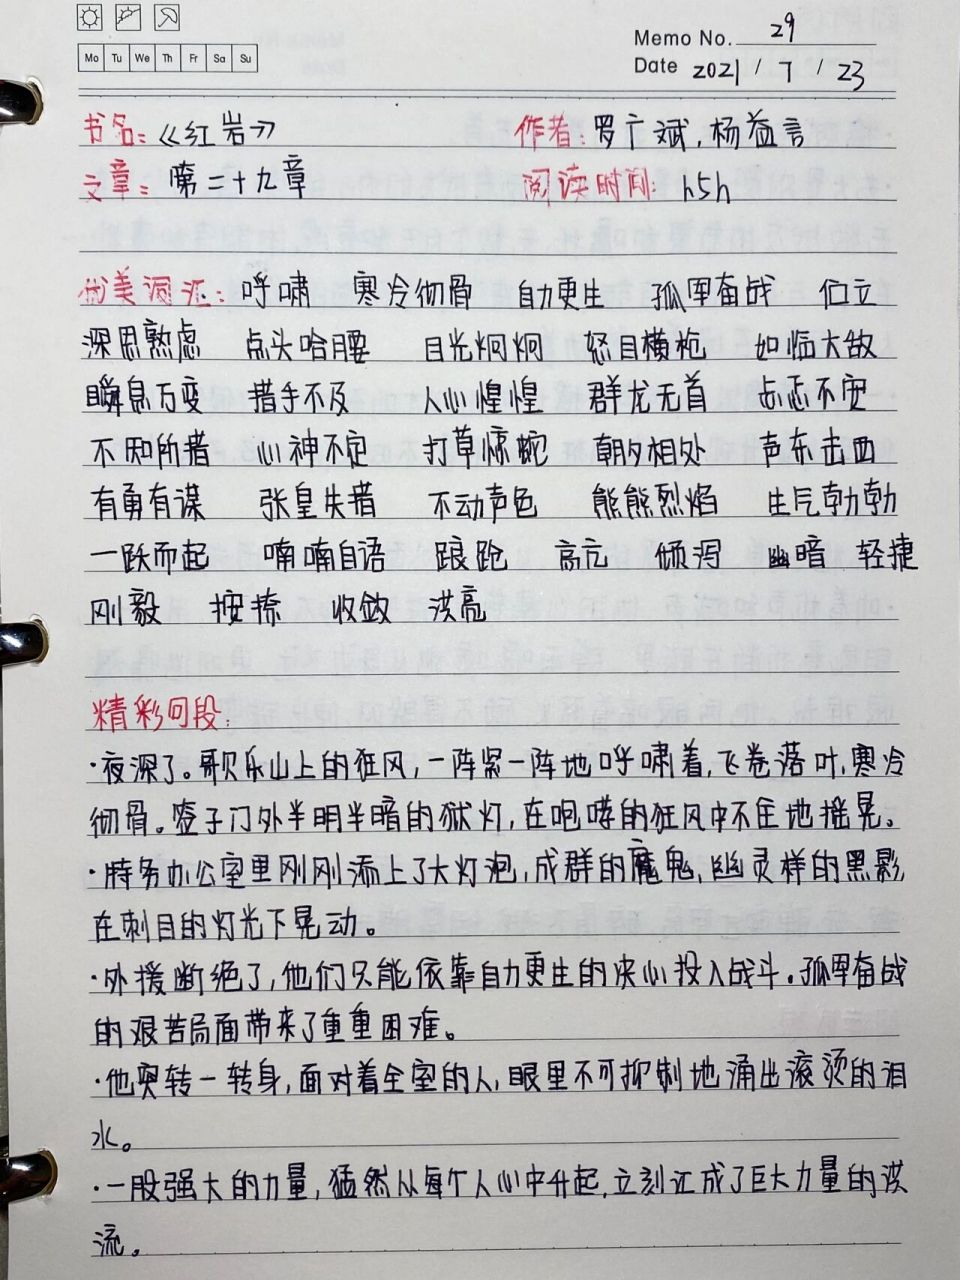 Memo No. 29
Mo Tu We Th Fr Sa Su
Date 2021 / 7 / 23
书名:《红岩》 作者: 罗广斌,杨益言
文章: 第三十九章 阅读时间: h5h
优美词汇: 呼啸 寒冷彻骨 自力更生 孤军奋战 伫立
深思熟虑 点头哈腰 目光炯炯 怒目横枪 如临大敌
瞬息万变 措手不及 人心惶惶 群龙无首 忐忑不安
不知所措 心神不定 打草惊蛇 朝夕相处 声东击西
有勇有谋 张皇失措 不动声色 熊熊烈焰 生气勃勃
一跃而起 喃喃自语 踉跄 高亢 倾泻 幽暗 轻捷
刚毅 按捺 收敛 洪亮
精彩回段:
·夜深了。歌乐山上的狂风,一阵紧一阵地呼啸着,飞卷落叶,寒冷
彻骨。签子门外半明半暗的狱灯,在咆哮的狂风中不住地摇晃。
·特务办公室里刚刚添上了大灯泡,成群的魔鬼,幽灵样的黑影
在刺目的灯光下晃动。
·外援断绝了,他们只能依靠自力更生的决心投入战斗。孤军奋战
的艰苦局面带来了重重困难。
·他突转一转身,面对着全室的人,眼里不可抑制地涌出滚烫的泪
水。
·一股强大的力量,猛然从每个人心中升起,立刻汇成了巨大力量的洪
流。